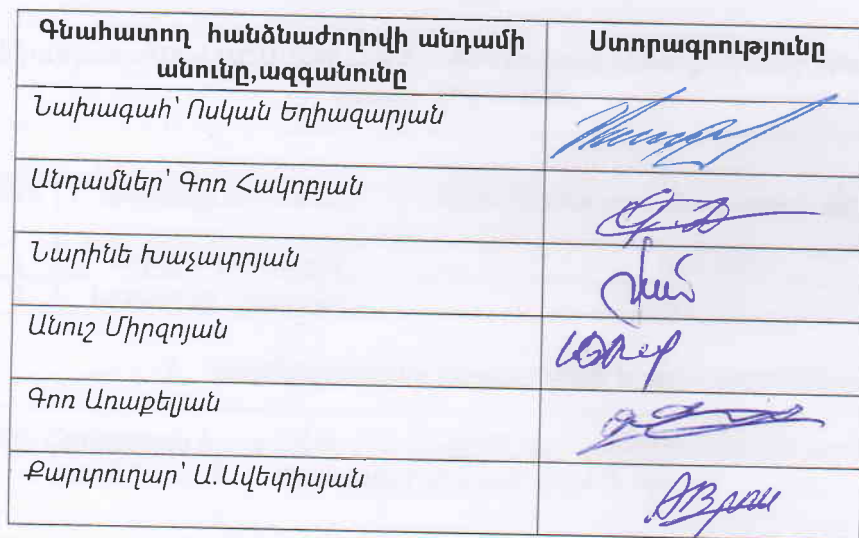 Գնահատող հանձնաժողովի անդամի
անունը,ազգանունը
Ստորագրությունը
Նախագահ՝ Ոսկան Եղիազարյան
Անդամներ՝ Գոռ Հակոբյան
Նարինե Խաչատրյան
Անուշ Միրզոյան
Գոռ Առաքելյան
Քարտուղար՝ Ա.Ավետիսյան